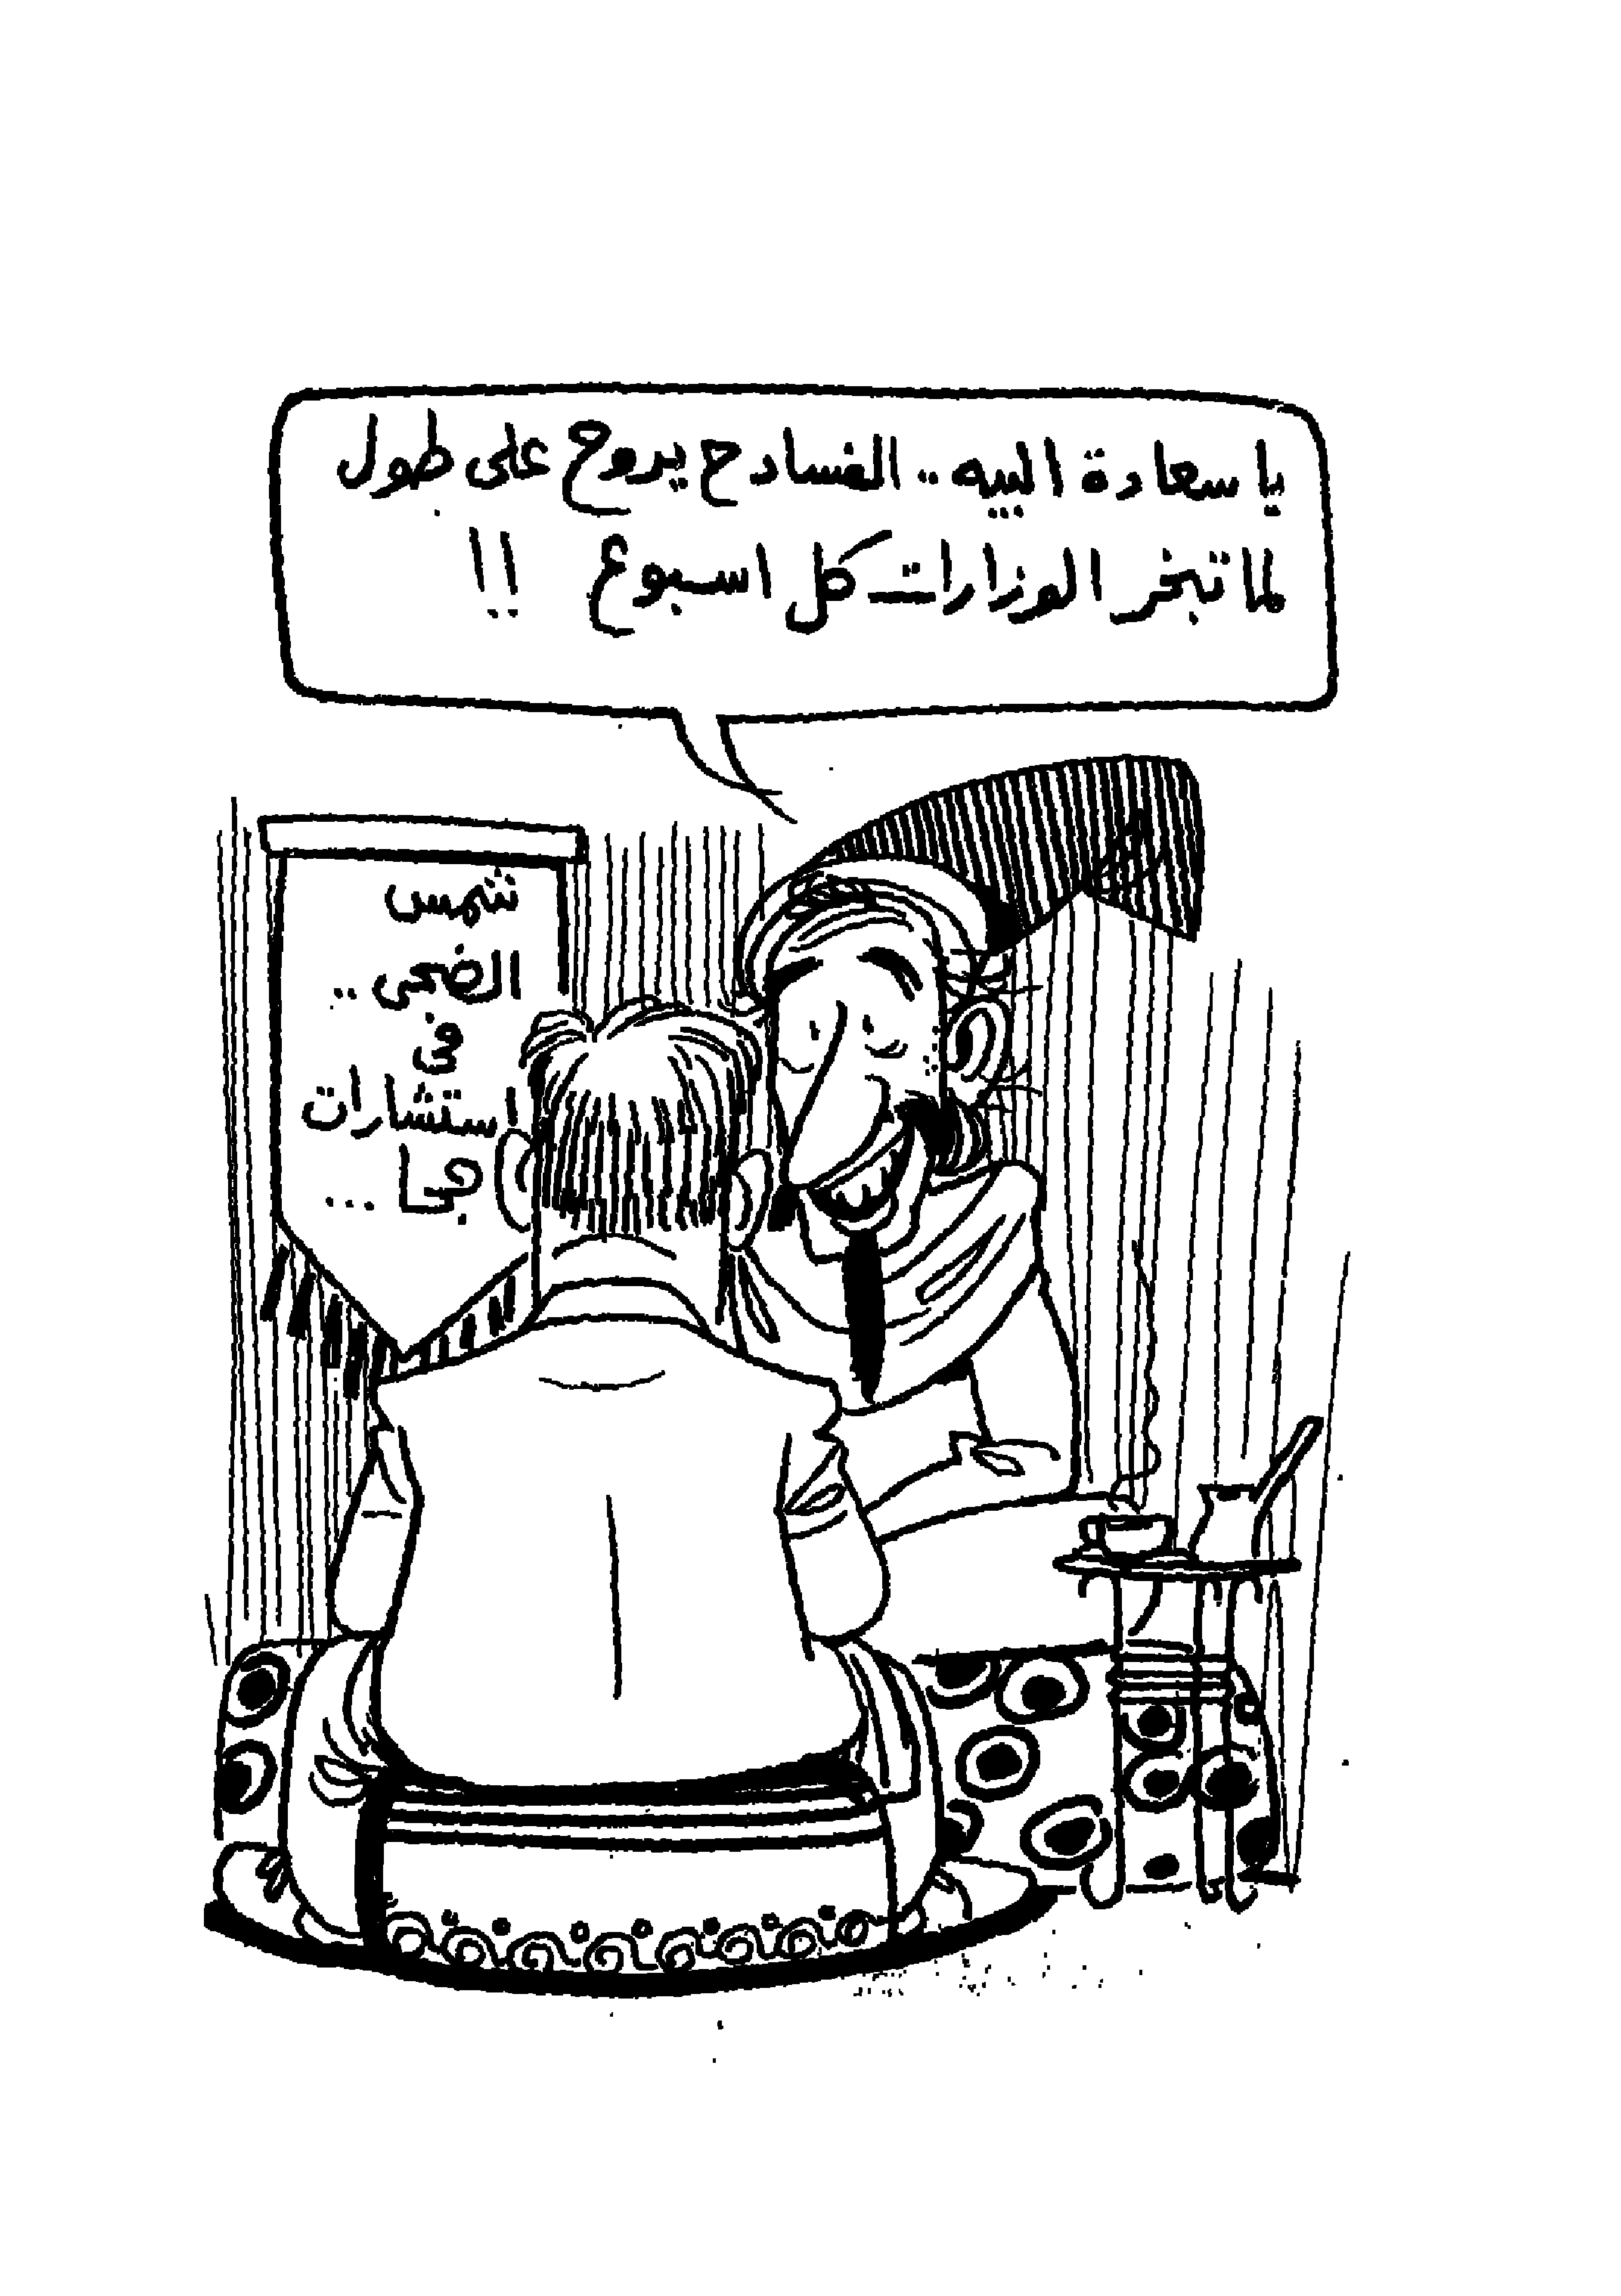 يا سعادة البيه .. الفسادح يروح على طول
لما تبخر الوزارات كل اسبوع !!
شمس
الضحى ..
فى
استشارات
جحا ...